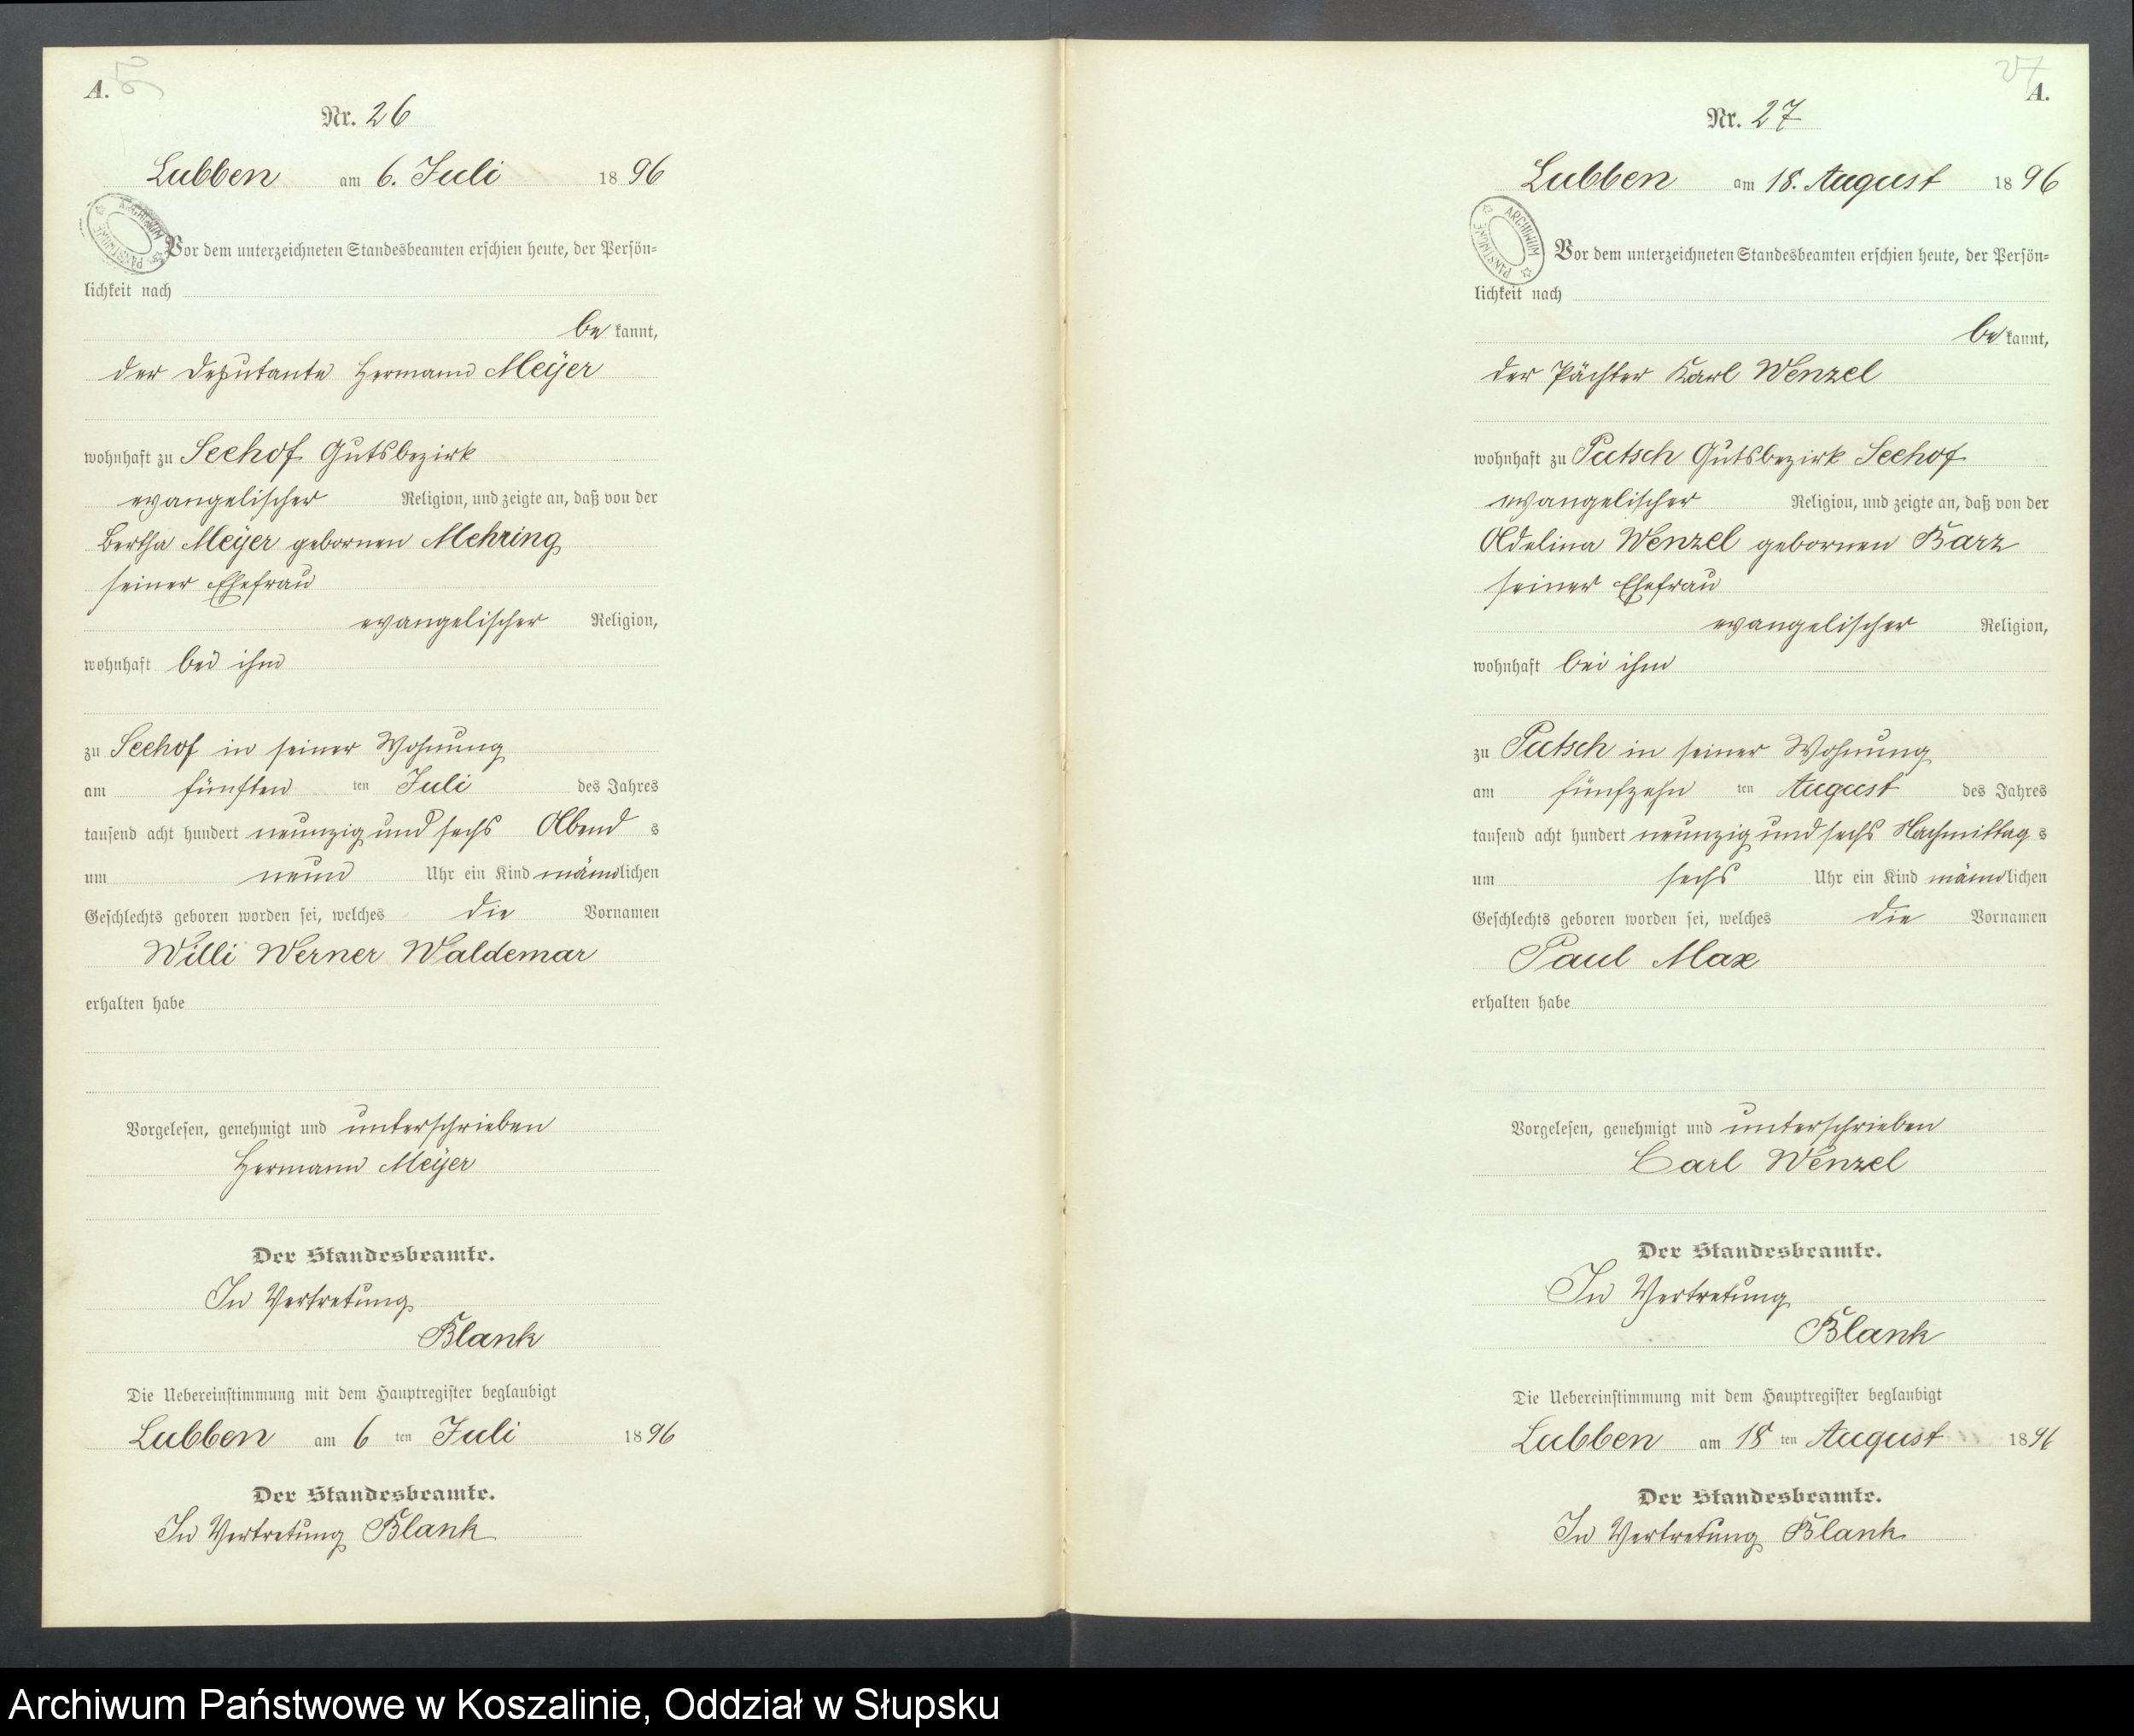 A.
Nr. 26
Lubben am 6. Juli 1896
ARCHIWUM PAŃSTWOWE
Vor dem unterzeichneten Standesbeamten erschien heute, der Persön=
lichkeit nach
be kannt,
der Deputante Hermann Meÿer
wohnhaft zu Seehof Gutsbezirk
evangelischer Religion, und zeigte an, daß von der
Bertha Meÿer gebornen Mehring
seiner Ehefrau
evangelischer Religion,
wohnhaft bei ihm
zu Seehof in seiner Wohnung
am fünften ten Juli des Jahres
tausend acht hundert neunzig und sechs Abend s
um neun Uhr ein Kind männlichen
Geschlechts geboren worden sei, welches die Vornamen
Willi Werner Waldemar
erhalten habe
Vorgelesen, genehmigt und unterschrieben
Hermann Meÿer
Der Standesbeamte.
In Vertretung
Blank
Die Uebereinstimmung mit dem Hauptregister beglaubigt
Lubben am 6 ten Juli 1896
Der Standesbeamte.
In Vertretung Blank
27
A.
Nr. 27
Lubben am 18. August 1896
ARCHIWUM PAŃSTWOWE
Vor dem unterzeichneten Standesbeamten erschien heute, der Persön=
lichkeit nach
be kannt,
der Pächter Karl Wenzel
wohnhaft zu Putsch Gutsbezirk Seehof
evangelischer Religion, und zeigte an, daß von der
Adelina Wenzel gebornen Barz
seiner Ehefrau
evangelischer Religion,
wohnhaft bei ihm
zu Putsch in seiner Wohnung
am fünfzehn ten August des Jahres
tausend acht hundert neunzig und sechs Nachmittag s
um sechs Uhr ein Kind männlichen
Geschlechts geboren worden sei, welches die Vornamen
Paul Max
erhalten habe
Vorgelesen, genehmigt und unterschrieben
Carl Wenzel
Der Standesbeamte.
In Vertretung
Blank
Die Uebereinstimmung mit dem Hauptregister beglaubigt
Lubben am 18 ten August 1896
Der Standesbeamte.
In Vertretung Blank
Archiwum Państwowe w Koszalinie, Oddział w Słupsku